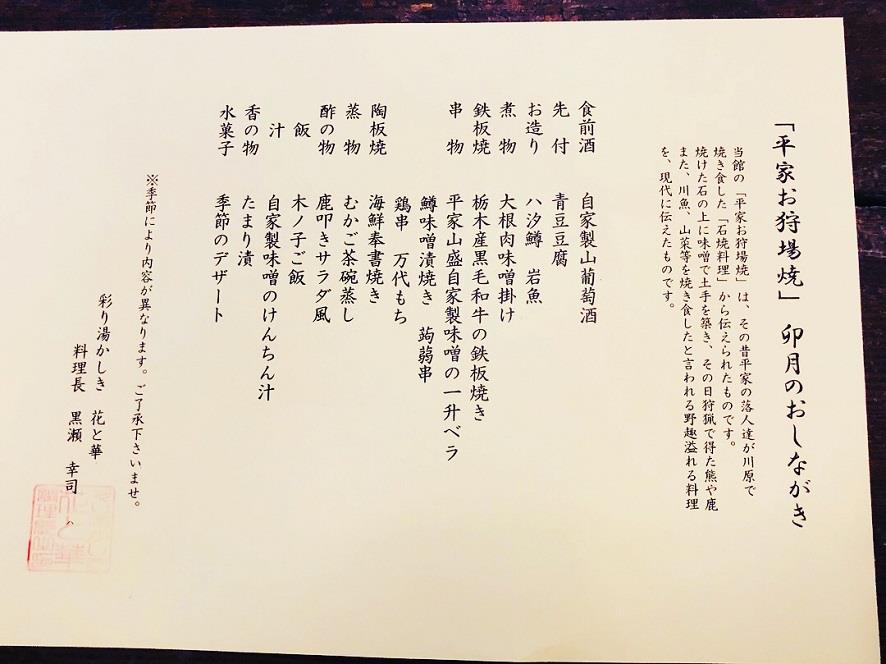 「平家お狩場焼」 卯月のおしながき
当館の「平家お狩場焼」は、その昔平家の落人達が川原で
焼き食した「石焼料理」から伝えられたものです。
焼けた石の上に味噌で土手を築き、その日狩猟で得た熊や鹿
また、川魚、山菜等を焼き食したと言われる野趣溢れる料理
を、現代に伝えたものです。
食前酒 自家製山葡萄酒
先付 青豆豆腐
お造り 八汐鱒 岩魚
煮物 大根肉味噌掛け
鉄板焼 栃木産黒毛和牛の鉄板焼き
串物 平家山盛自家製味噌の一升ベラ
鱒味噌漬焼き 蒟蒻串
鶏串 万代もち
陶板焼 海鮮奉書焼き
蒸物 むかご茶碗蒸し
酢の物 鹿叩きサラダ風
飯 木ノ子ご飯
汁 自家製味噌のけんちん汁
香の物 たまり漬
水菓子 季節のデザート
※季節により内容が異なります。ご了承下さいませ。
彩り湯かしき 花と華
料理長 黒瀬 幸司